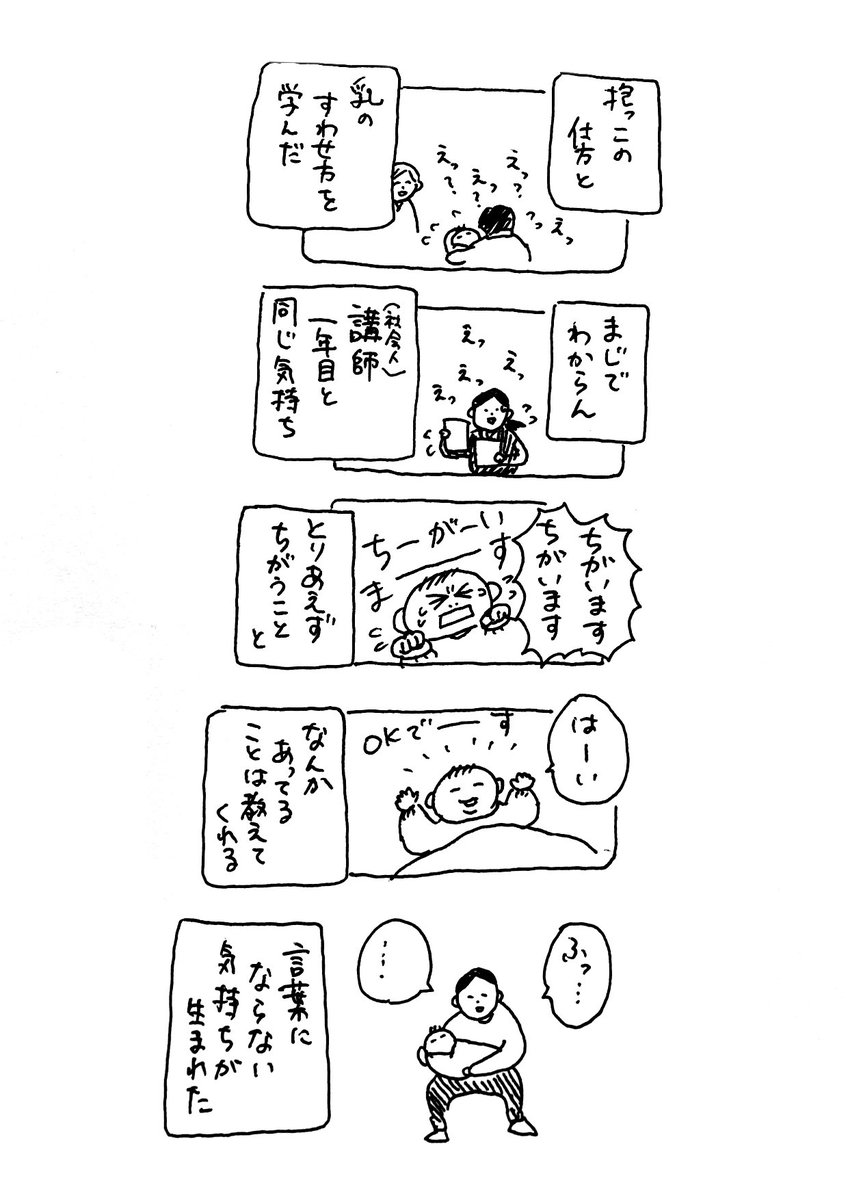 抱っこの
仕方と
えっ?
えっ?
えっ?
えっ
乳の
すわせ方を
学んだ
まじで
わからん
えっ
えっ
えっ
えっ
(社会人)
講師
一年目と
同じ気持ち
ちがいます
ちがいます
ちーがーい
まーーす
とりあえず
ちがうこと
と
はーい
OKでーーす
なんか
あってる
ことは教えて
くれる
ふっ…
…
言葉に
ならない
気持ちが
生まれた